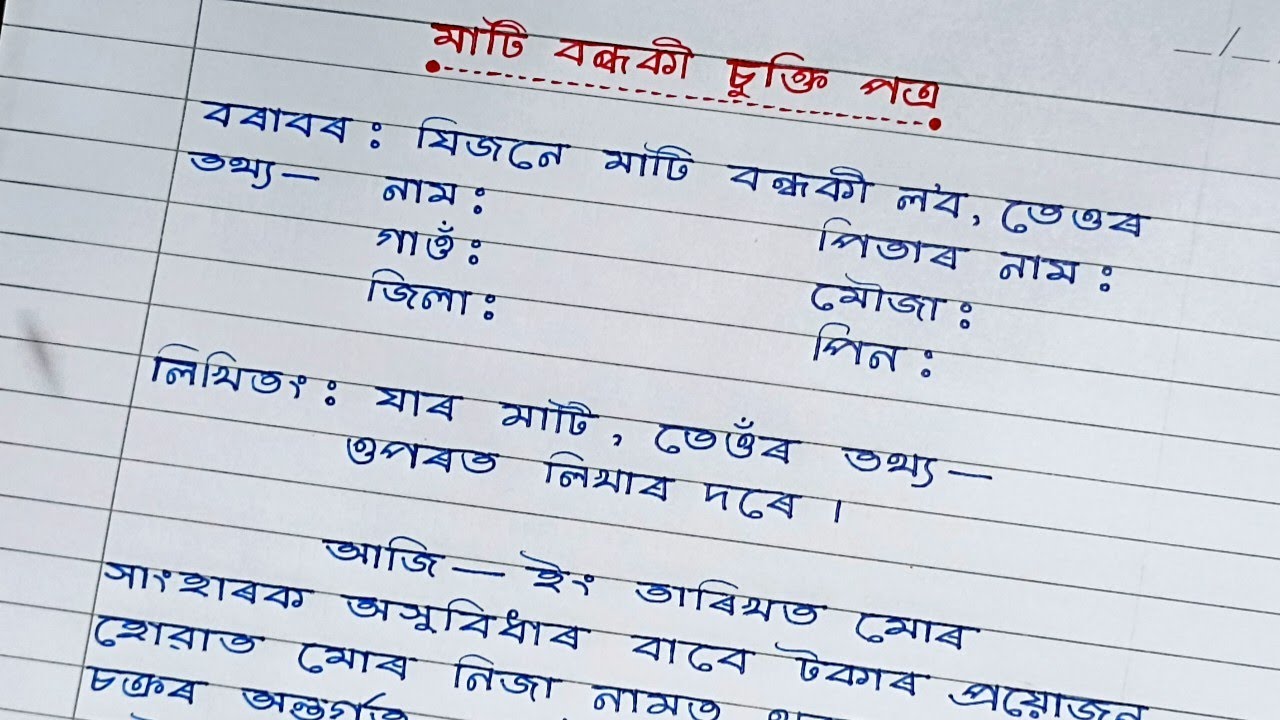 মাটি বন্ধকী চুক্তি পত্ৰ
বৰাবৰ : যিজনে মাটি বন্ধকী ল'ব, তেওৰ
তথ্য — নাম : পিতাৰ নাম :
গাওঁ : মৌজা :
জিলা : পিন :
লিখিতং : যাৰ মাটি, তেওঁৰ তথ্য —
ওপৰত লিখাৰ দৰে ।
আজি — ইং তাৰিখত মোৰ
সাংহাৰক অসুবিধাৰ বাবে টকাৰ প্ৰয়োজন
হোৱাত মোৰ নিজা নামত
চক্ৰৰ অন্তৰ্গত